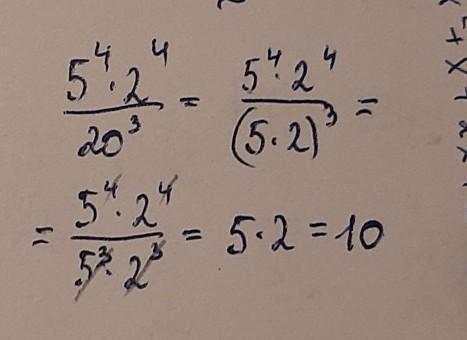 5⁴·2⁴/20³ = 5⁴·2⁴/(5·2)³ =
= 5⁴·2⁴/5³·2³ = 5·2 = 10